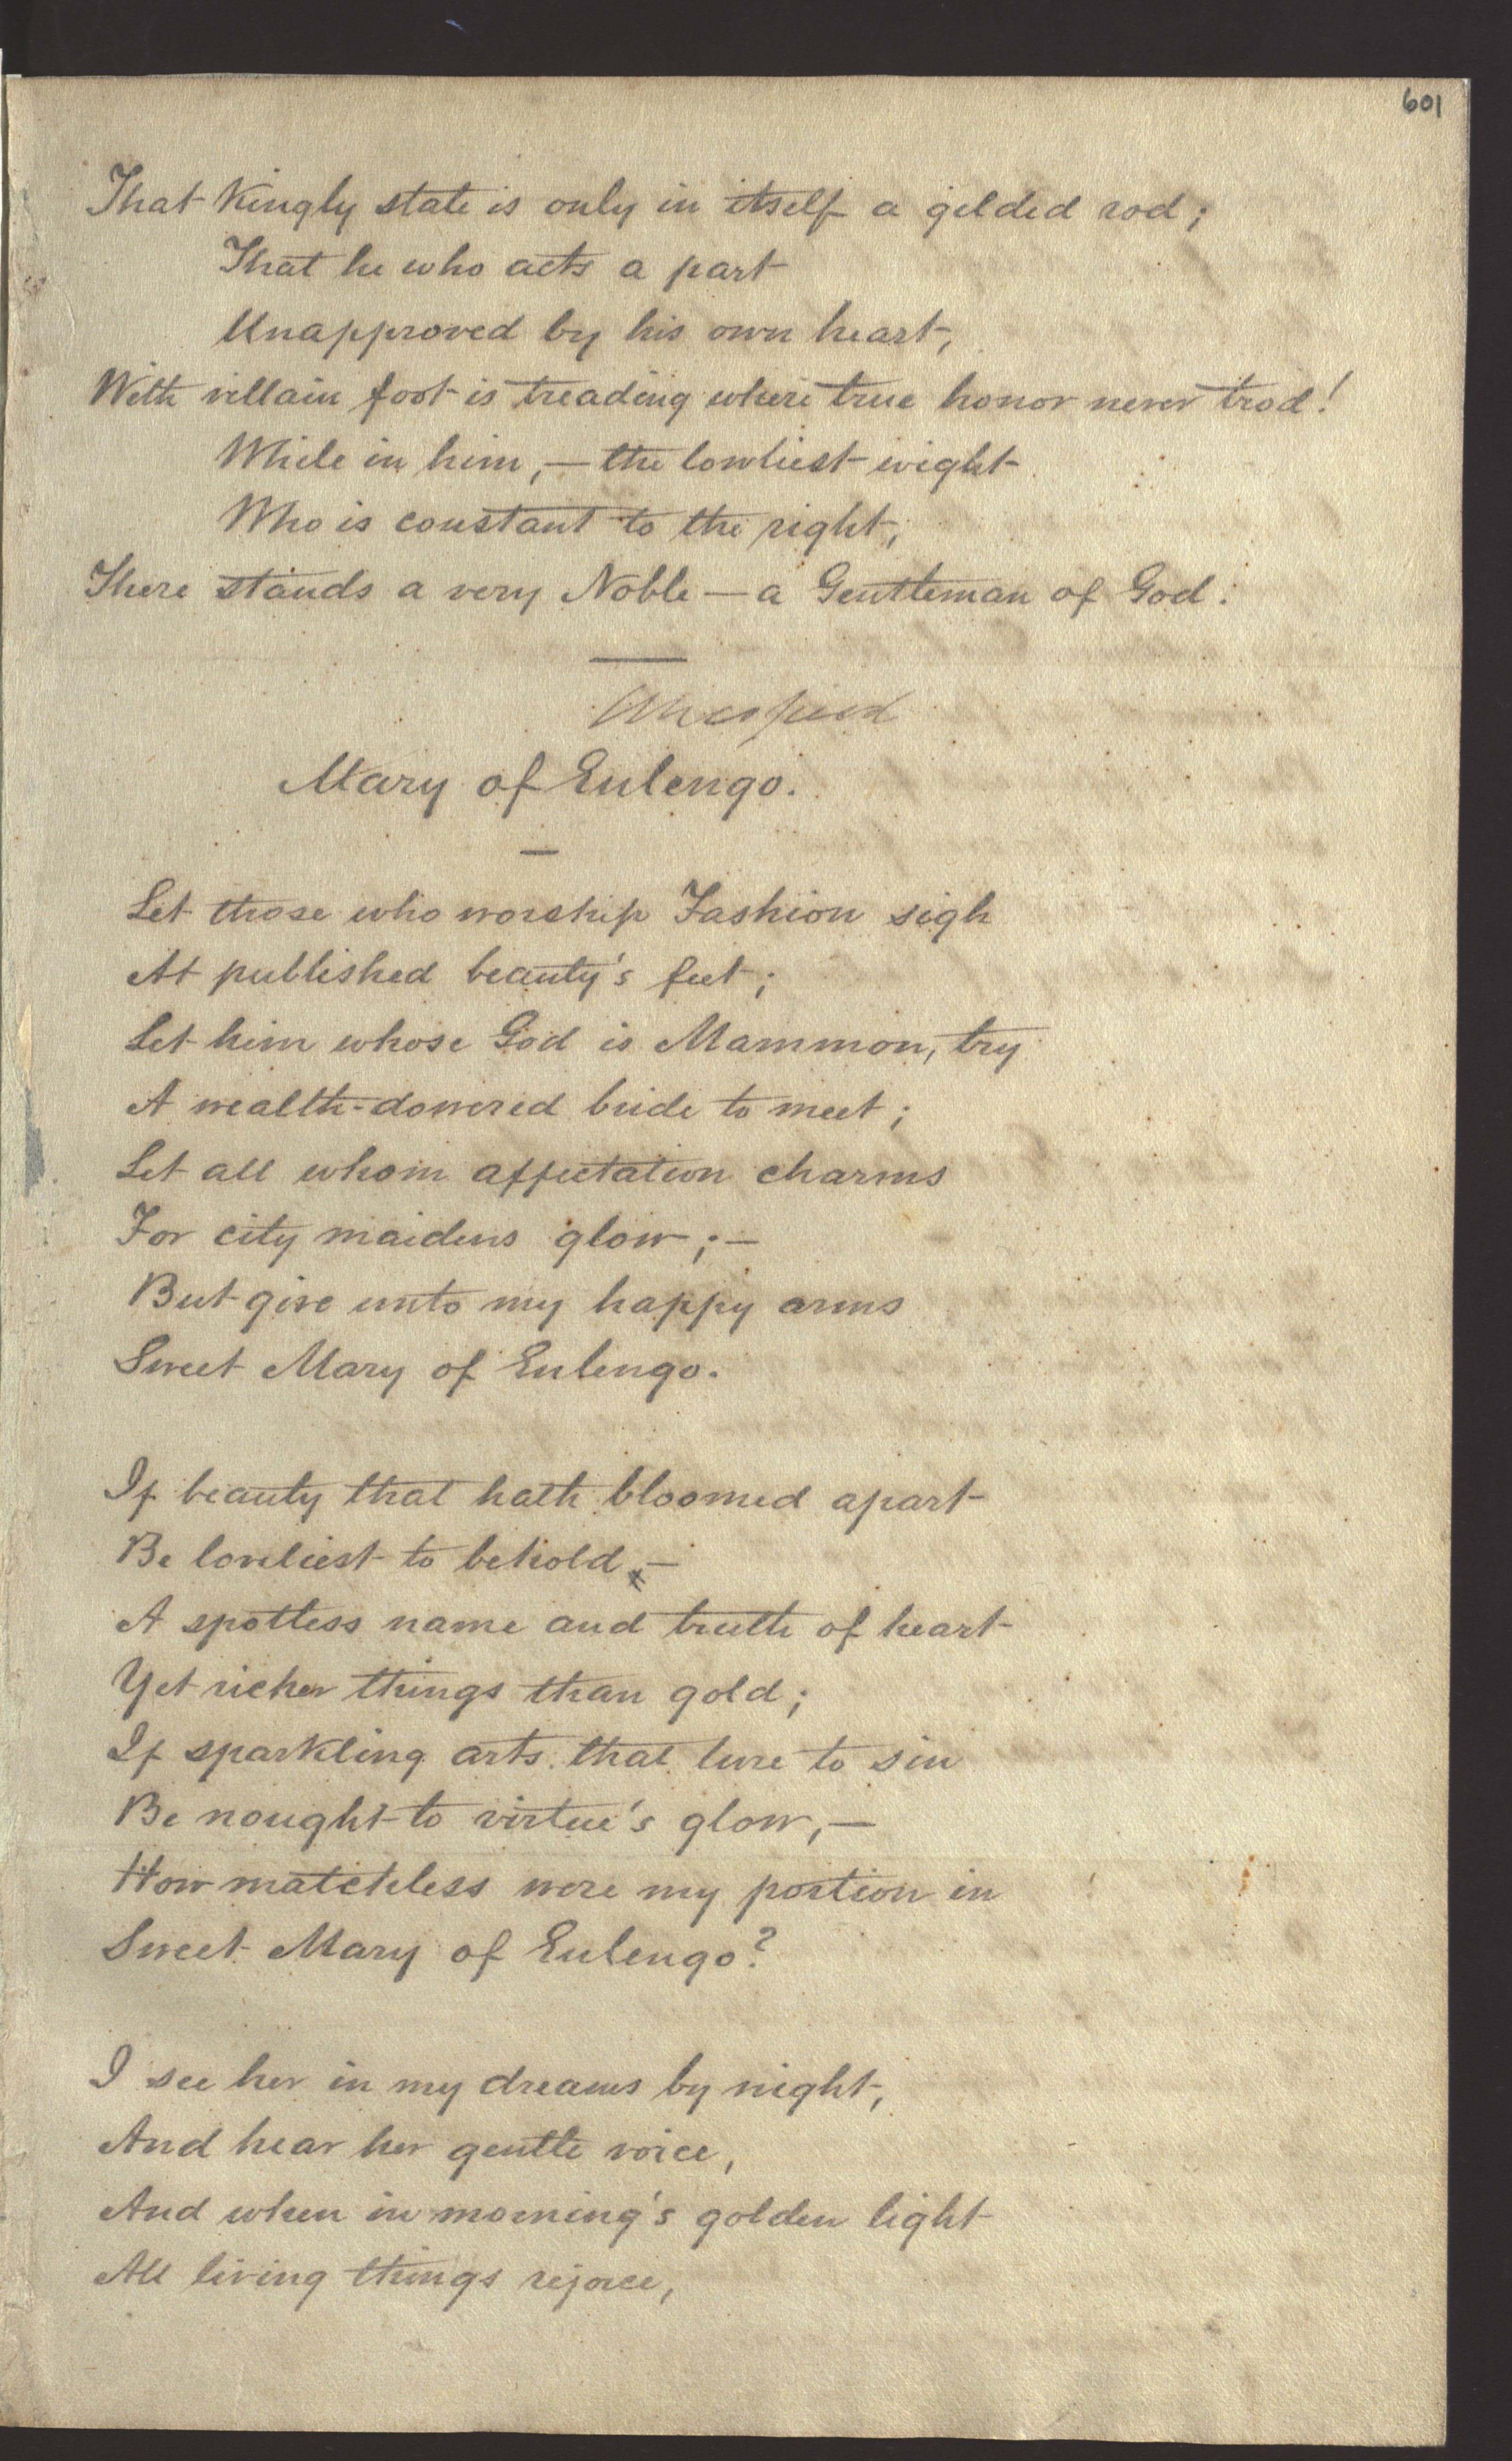 601
That Kingly state is only in itself a gilded rod;
That he who acts a part
Unapproved by his own heart,
With villain foot is treading where true honor never trod!
While in him, — the lowliest wight
Who is constant to the right,
There stands a very Noble — a Gentleman of God.
Mary of Eulengo.
Let those who worship Fashion sigh
At published beauty's feet;
Let him whose God is Mammon, try
A wealth-dowered bride to meet;
Let all whom affectation charms
For city maidens glow; —
But give unto my happy arms
Sweet Mary of Eulengo.
If beauty that hath bloomed apart
Be loveliest to behold, —
A spotless name and truth of heart
Yet richer things than gold;
If sparkling arts that lure to sin
Be nought to virtue's glow, —
How matchless were my portion in
Sweet Mary of Eulengo?
I see her in my dreams by night,
And hear her gentle voice,
And when in morning's golden light
All living things rejoice,